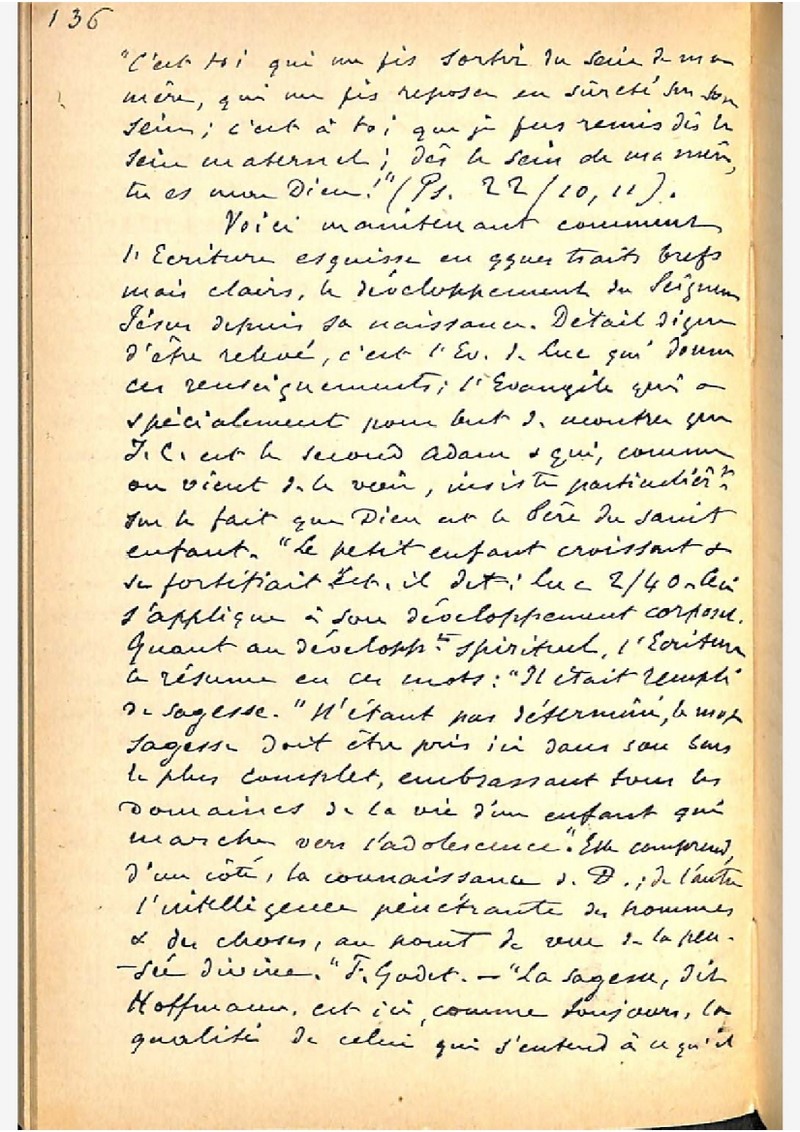 136
"C'est toi qui me fis sortir du sein de ma
mère, qui me fis reposer en sûreté sur son
sein; c'est à toi que je fus remis dès le
sein maternel; dès le sein de ma mère,
tu es mon Dieu!" (Ps. 22/10,11).
Voici maintenant comment
l'Ecriture esquisse en qques traits brefs
mais clairs, le développement du Seigneur
Jésus depuis sa naissance. Détail digne
d'être relevé, c'est l'Ev. de Luc qui donne
ces renseignements; l'Evangile qui a
spécialement pour but de montrer que
J. C. est le second Adam & qui, comme
on vient de le voir, insiste particulièrt
sur le fait que Dieu est le Père du saint
enfant. "Le petit enfant croissait &
se fortifiait", est-il dit: Luc 2/40. Ceci
s'applique à son développement corporel.
Quant au développt spirituel, l'Ecriture
le résume en ces mots: "Il était rempli
de sagesse." "N'étant pas déterminé, le mot
sagesse doit être pris ici dans son sens
le plus complet, embrassant tous les
domaines de la vie d'un enfant qui
marche vers l'adolescence". Elle comprend,
d'un côté, la connaissance de D.; de l'autre
l'intelligence pénétrante des hommes
& des choses, au point de vue de la pen-
-sée divine." F. Godet. — "La sagesse, dit
Hoffmann, est ici, comme toujours, la
qualité de celui qui s'entend à ce qu'il